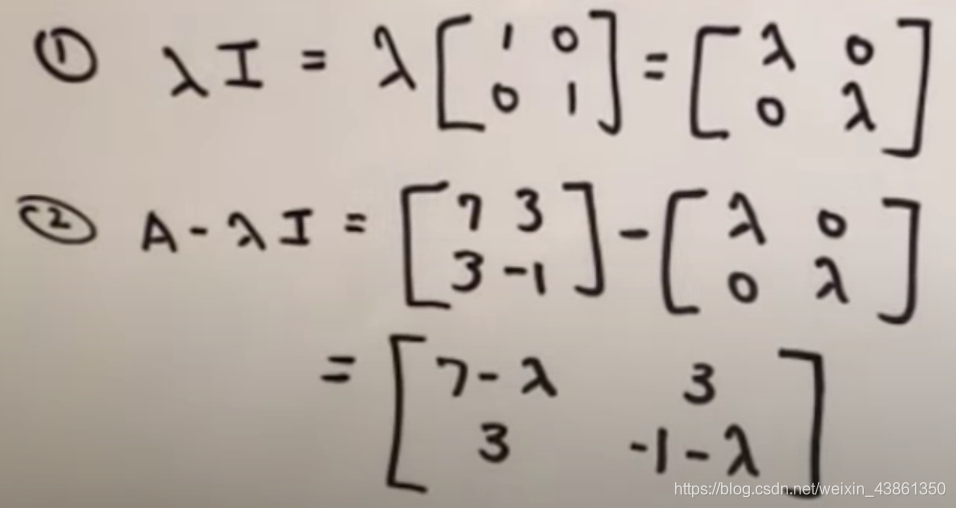 ① λI = λ[1 0; 0 1] = [λ 0; 0 λ]
② A - λI = [7 3; 3 -1] - [λ 0; 0 λ]
= [7-λ 3; 3 -1-λ]
https://blog.csdn.net/weixin_43861350